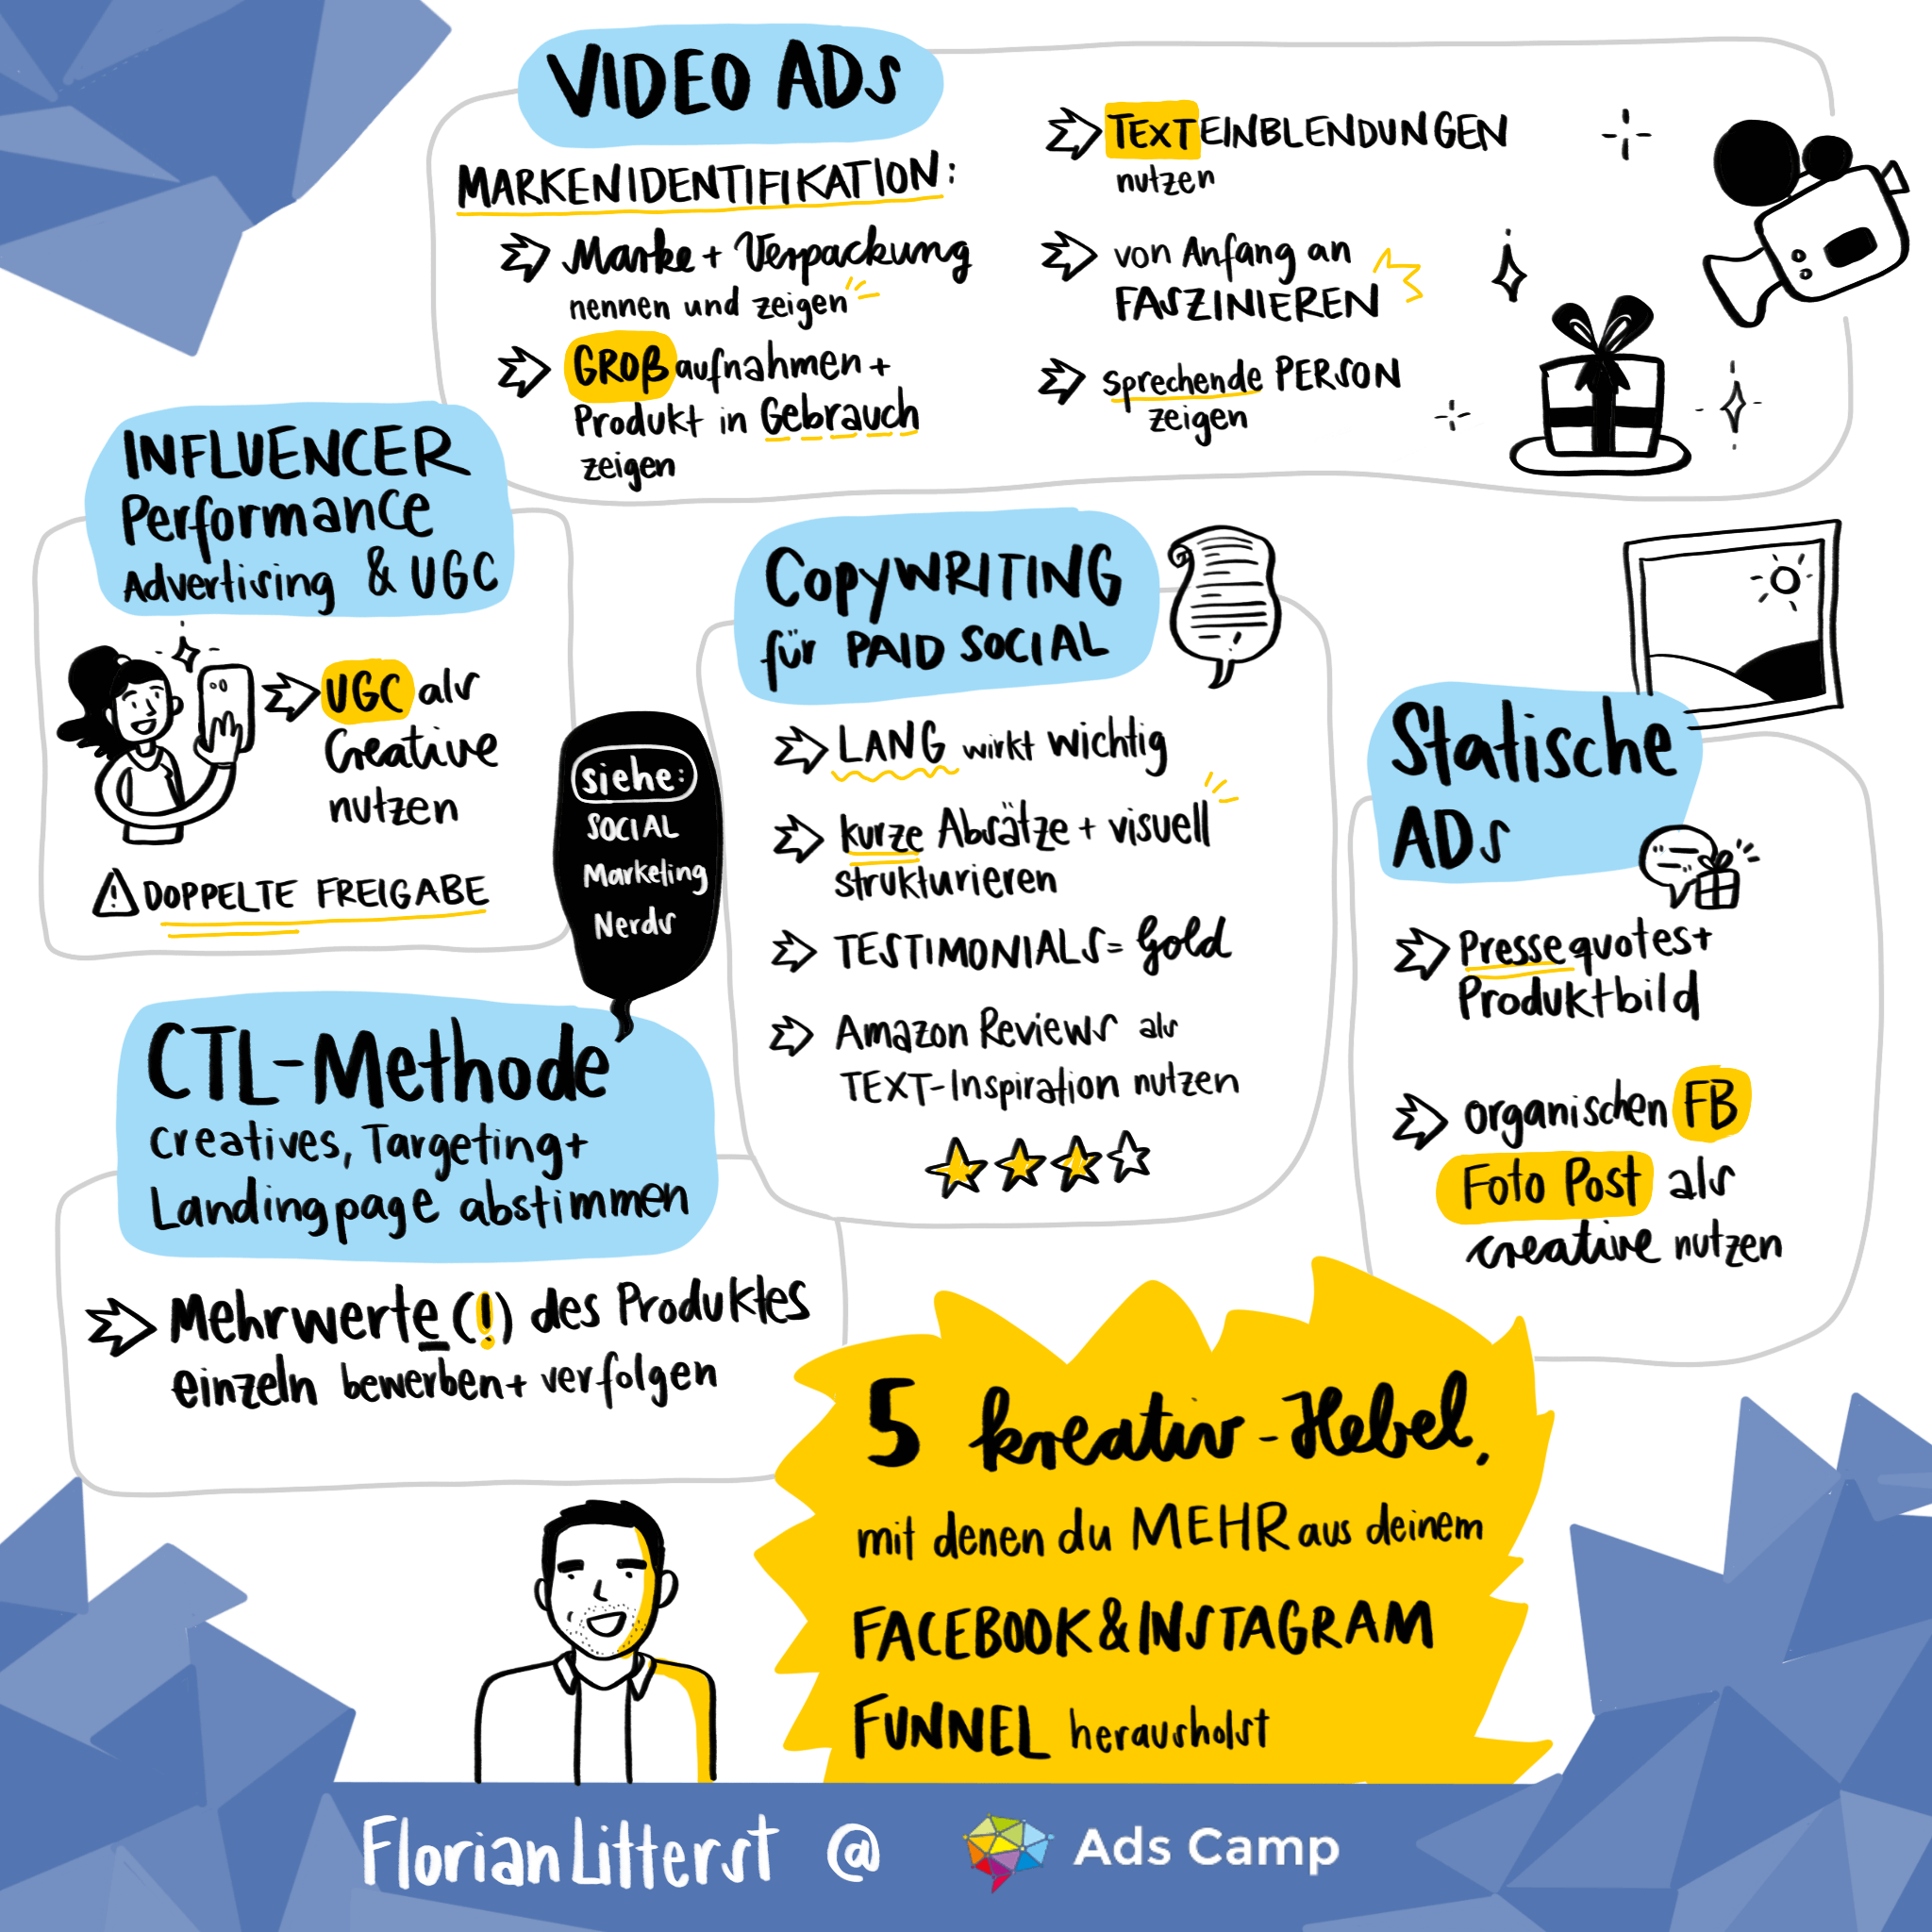 VIDEO ADs
MARKENIDENTIFIKATION:
Marke + Verpackung
nennen und zeigen
GROßaufnahmen +
Produkt in Gebrauch
zeigen
TEXTEINBLENDUNGEN
nutzen
von Anfang an
FASZINIEREN
sprechende PERSON
zeigen
INFLUENCER
Performance
Advertising & UGC
UGC als
Creative
nutzen
DOPPELTE FREIGABE
siehe:
SOCIAL
Marketing
Nerds
COPYWRITING
für PAID SOCIAL
LANG wirkt wichtig
kurze Absätze + visuell
strukturieren
TESTIMONIALS = Gold
Amazon Reviews als
TEXT-Inspiration nutzen
Statische
ADs
Pressequotes+
Produktbild
organischen FB
Foto Post als
creative nutzen
CTL-Methode
Creatives, Targeting+
Landingpage abstimmen
Mehrwerte (!) des Produktes
einzeln bewerben + verfolgen
5 kreativ-Hebel,
mit denen du MEHR aus deinem
FACEBOOK & INSTAGRAM
FUNNEL herausholst
Florian Litterst @ Ads Camp